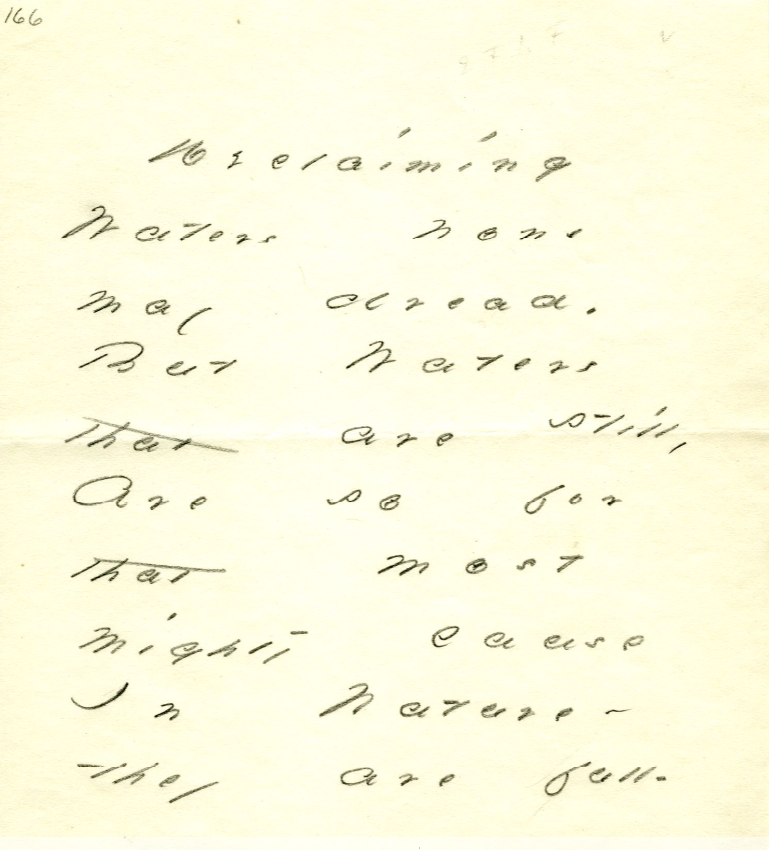 166
Declaiming
Waters none
may dread.
But Waters
that are still,
Are so for
that most
mighty cause
In Nature -
they are full.